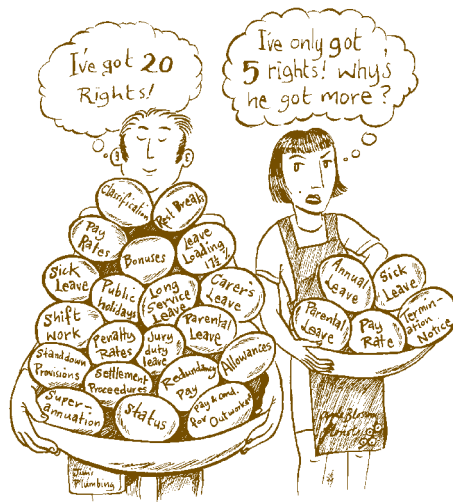 I've got 20
Rights!
I've only got
5 rights! Why's
he got more?
Classification
Rest Breaks
Pay
Rates
Bonuses
Leave
Loading
17½
Sick
Leave
Public
holidays
Long
Service
Leave
Carers
Leave
Shift
Work
Penalty
Rates
Jury
duty
leave
Parental
Leave
Stand down
Provisions
Settlement
Proceedures
Redundancy
Pay
Allowances
Super-
annuation
Status
Pay & Cond.
for Outworkers
Plumbing
Annual
Leave
Sick
Leave
Parental
Leave
Pay
Rate
Termin-
ation
Notice